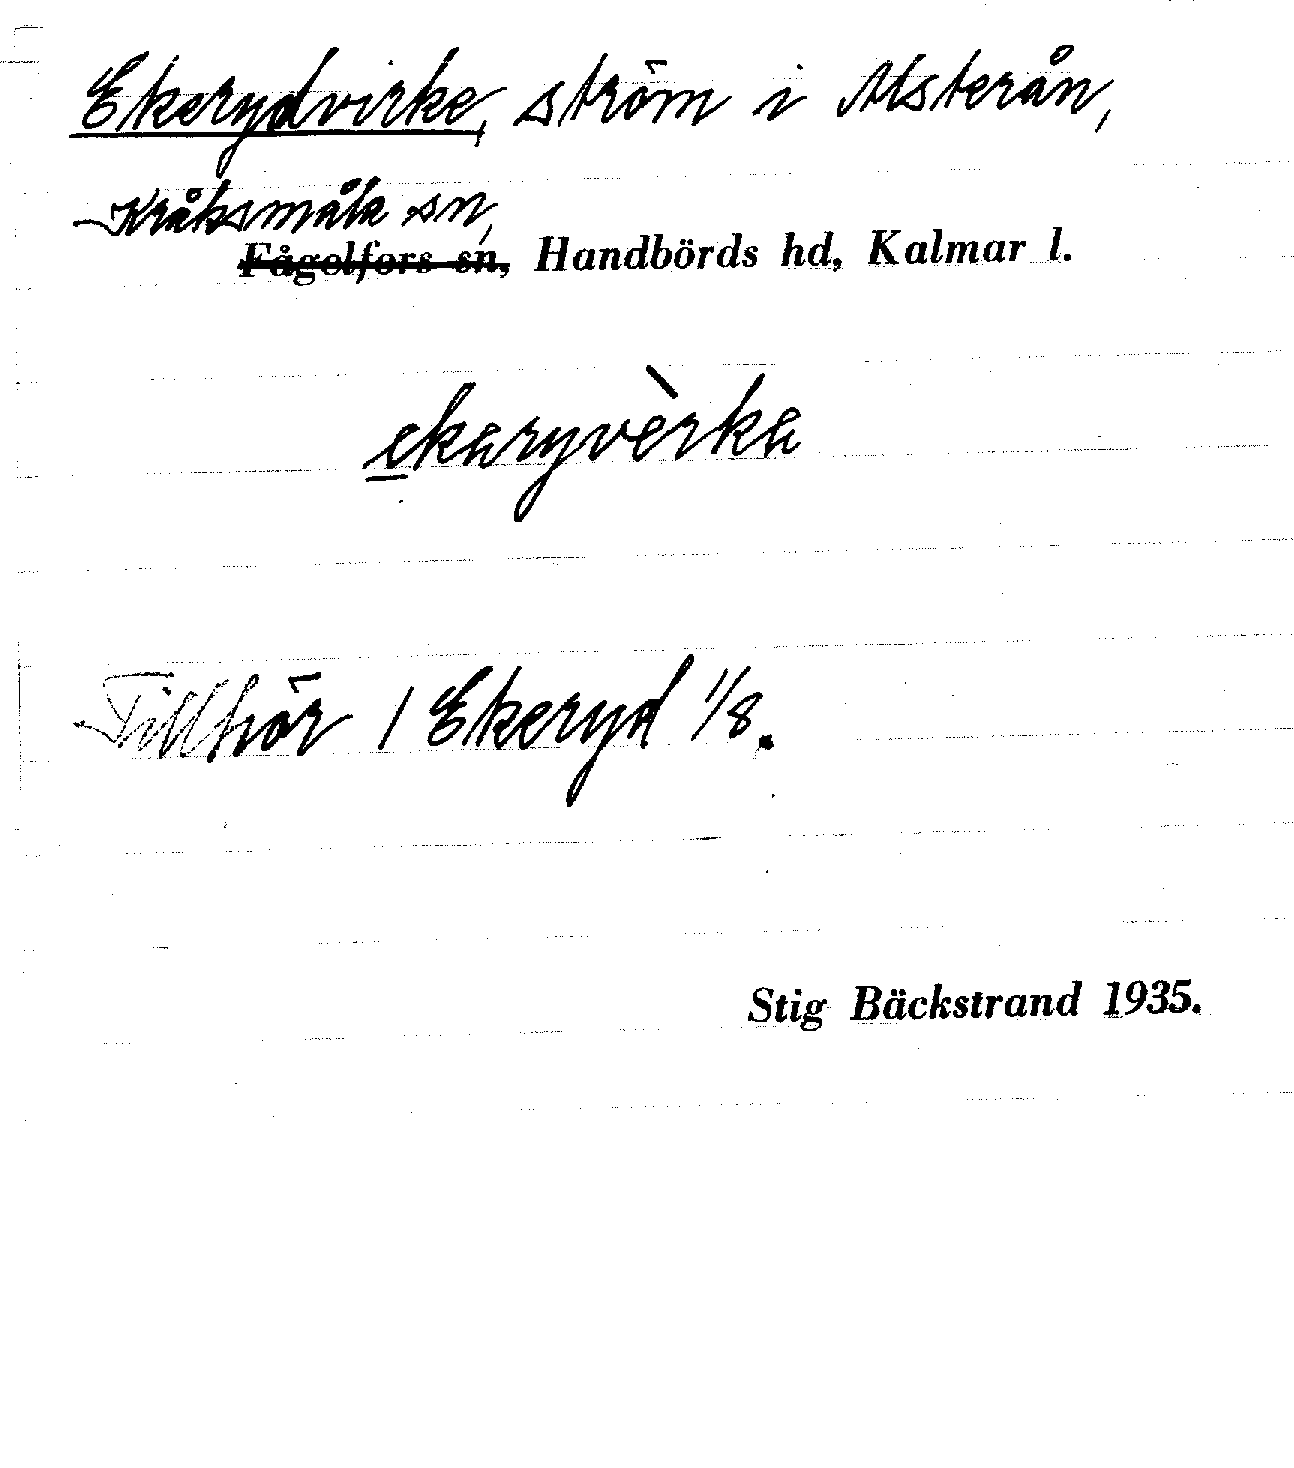 Ekerydvirke, ström i Alsterån,
Kråksmåla sn,
Fågelfors sn, Handbörds hd, Kalmar l.
ekaryvèrka
Tillhör 1 Ekeryd 1/8.
Stig Bäckstrand 1935.